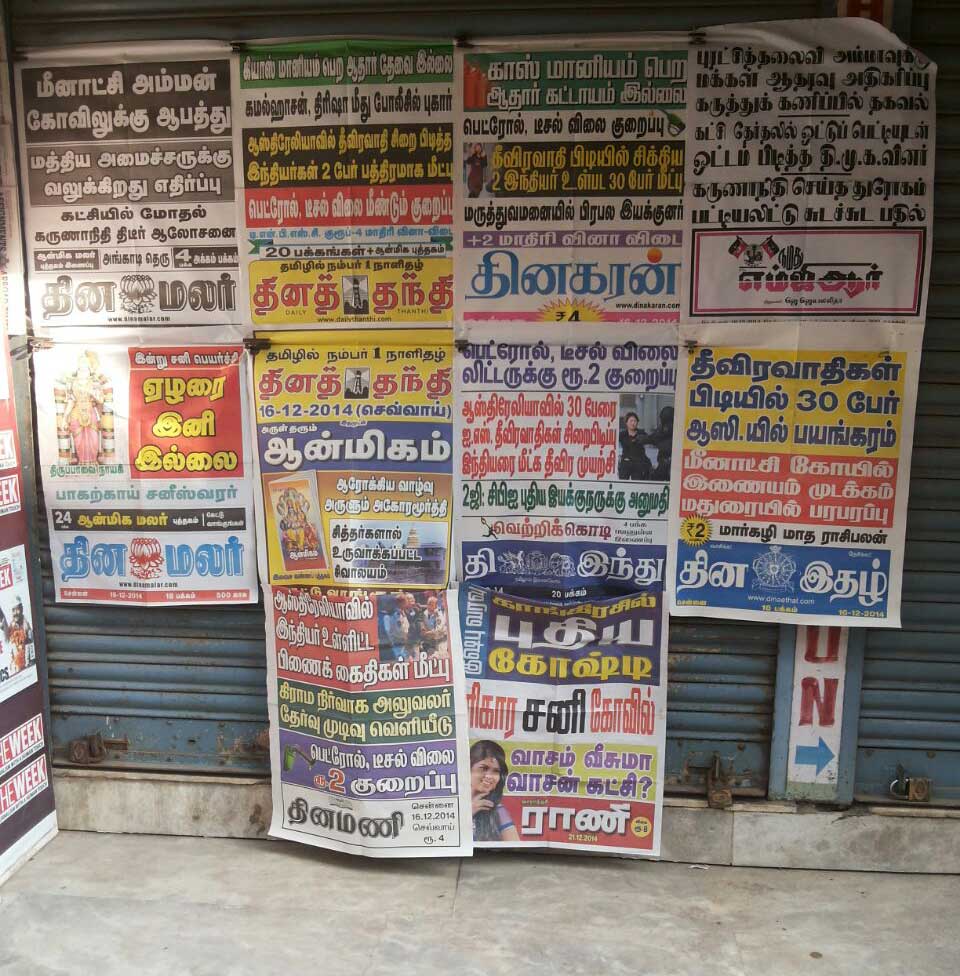 மீனாட்சி அம்மன்
கோவிலுக்கு ஆபத்து
மத்திய அமைச்சருக்கு
வலுக்கிறது எதிர்ப்பு
கட்சியில் மோதல்
கருணாநிதி திடீர் ஆலோசனை
ஆன்மிக மலர்
புத்தகம் இணைப்பு
அங்காடி தெரு
4 அக்கம் பக்கம்
தின மலர்
www.dinamalar.com
கியாஸ் மானியம் பெற ஆதார் தேவை இல்லை
கமல்ஹாசன், திரிஷா மீது போலீசில் புகார்
ஆஸ்திரேலியாவில் தீவிரவாதி சிறை பிடித்த
இந்தியர்கள் 2 பேர் பத்திரமாக மீட்பு
பெட்ரோல், டீசல் விலை மீண்டும் குறைப்பு
டி.என்.பி.எஸ்.சி. குரூப்-4 மாதிரி வினா-விடை
20 பக்கங்கள் + ஆன்மிக புத்தகம்
தமிழில் நம்பர் 1 நாளிதழ்
தினத் தந்தி
DAILY THANTHI
www.dailythanthi.com
காஸ் மானியம் பெற
ஆதார் கட்டாயம் இல்லை
பெட்ரோல், டீசல் விலை குறைப்பு
தீவிரவாதி பிடியில் சிக்கிய
2 இந்தியர் உள்பட 30 பேர் மீட்பு
மருத்துவமனையில் பிரபல இயக்குனர்
+2 மாதிரி வினா விடை
தினகரன்
www.dinakaran.com
₹4
16-12-2014
புரட்சித்தலைவி அம்மாவுக்கு
மக்கள் ஆதரவு அதிகரிப்பு
கருத்துக் கணிப்பில் தகவல்
கட்சி தேர்தலில் ஓட்டுப் பெட்டியுடன்
ஓட்டம் பிடித்த தி.மு.க.வினர்
கருணாநிதி செய்த துரோகம்
பட்டியலிட்டு சுடச்சுட பதில்
நமது
எம்ஜிஆர்
நிறுவனர் ஜெ ஜெயலலிதா
இன்று சனி பெயர்ச்சி
ஏழரை
இனி
இல்லை
திருப்பாவை நாயகி
பாகற்காய் சனீஸ்வரர்
24 ஆன்மிக மலர் புத்தகம் கேட்டு வாங்குங்கள்
தின மலர்
www.dinamalar.com
சென்னை 16-12-2014 18 பக்கம் 500 காசு
தமிழில் நம்பர் 1 நாளிதழ்
தினத் தந்தி
16-12-2014 (செவ்வாய்)
அருள்தரும்
ஆன்மிகம்
ஆரோக்கிய வாழ்வு
அருளும் அகோரமூர்த்தி
சித்தர்களால்
உருவாக்கப்பட்ட
சிவாலயம்
ஆன்மிகம்
பெட்ரோல், டீசல் விலை
லிட்டருக்கு ரூ.2 குறைப்பு
ஆஸ்திரேலியாவில் 30 பேரை
ஐ.எஸ். தீவிரவாதிகள் சிறைபிடிப்பு
இந்தியரை மீட்க தீவிர முயற்சி
2ஜி: சிபிஐ புதிய இயக்குநருக்கு அனுமதி
வெற்றிக்கொடி
4 பக்க
தி இந்து
20 பக்கம்
தீவிரவாதிகள்
பிடியில் 30 பேர்
ஆஸி.யில் பயங்கரம்
மீனாட்சி கோயில்
இணையம் முடக்கம்
மதுரையில் பரபரப்பு
₹2 மார்கழி மாத ராசிபலன்
தின இதழ்
www.dinaethal.com
சென்னை 18 பக்கம் 16-12-2014
ஆஸ்திரேலியாவில்
இந்தியர் உள்ளிட்ட
பிணைக் கைதிகள் மீட்பு
கிராம நிர்வாக அலுவலர்
தேர்வு முடிவு வெளியீடு
பெட்ரோல், டீசல் விலை
ரூ2 குறைப்பு
தினமணி
சென்னை
16.12.2014
செவ்வாய்
ரூ. 4
குஷ்பு வரவு
காங்கிரசில்
புதிய
கோஷ்டி
பரிகார சனி கோவில்
வாசம் வீசுமா
வாசன் கட்சி?
ராணி
21.12.2014
THE WEEK
THE WEEK
UN